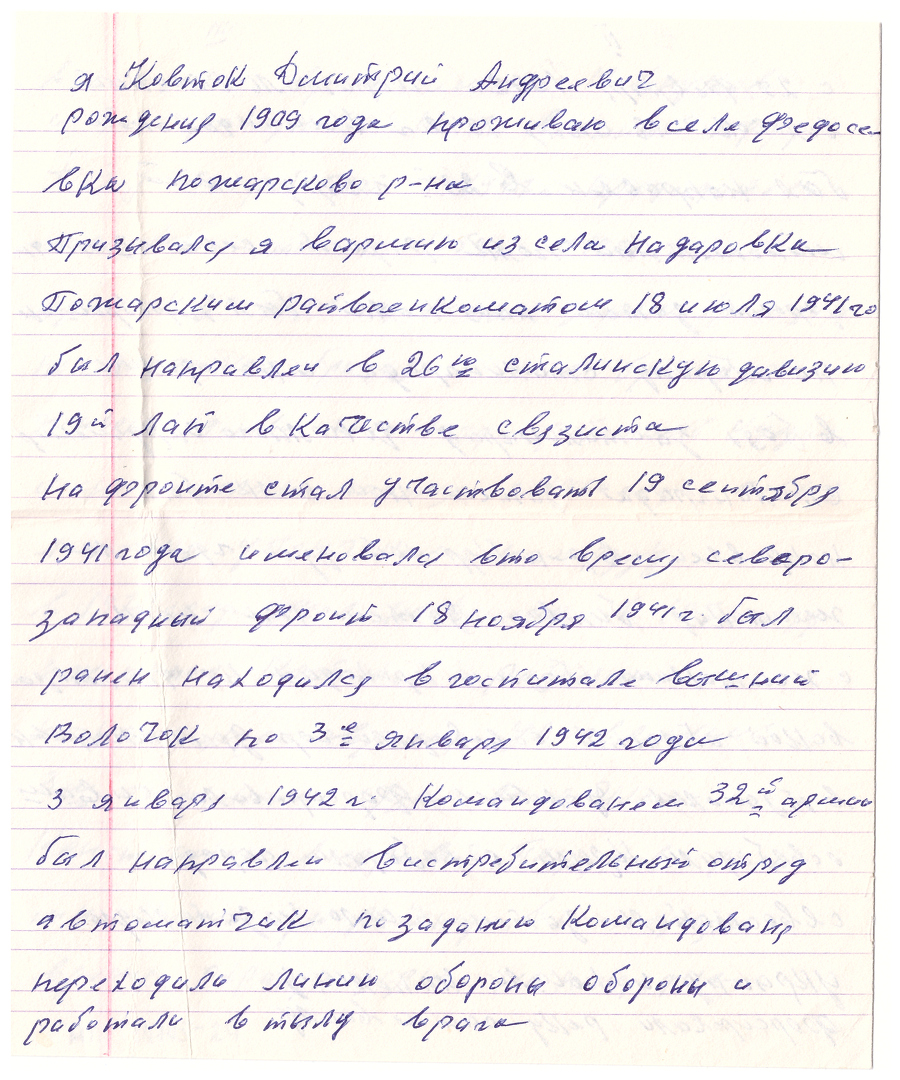 я Ковток Дмитрий Андреевич
рождения 1909 года проживаю в селе Федосе-
вка пожарсково р-на
Призывался я вармию из села Надаровка
Пожарским райвоенкоматом 18 июля 1941 го
был направлен в 26ю сталинскую дивизию
19й лап в качестве связиста
на фронте стал участвовать 19 сентября
1941 года именовался вто время северо-
западный фронт 18 ноября 1941 г. был
ранен находился в госпитале вышний
Волочок по 3е января 1942 года
3 января 1942 г. Командованем 32й армии
был направлен вистребительный отряд
автоматчик по заданию командования
переходили линию обороны обороны и
работали в тылу врага